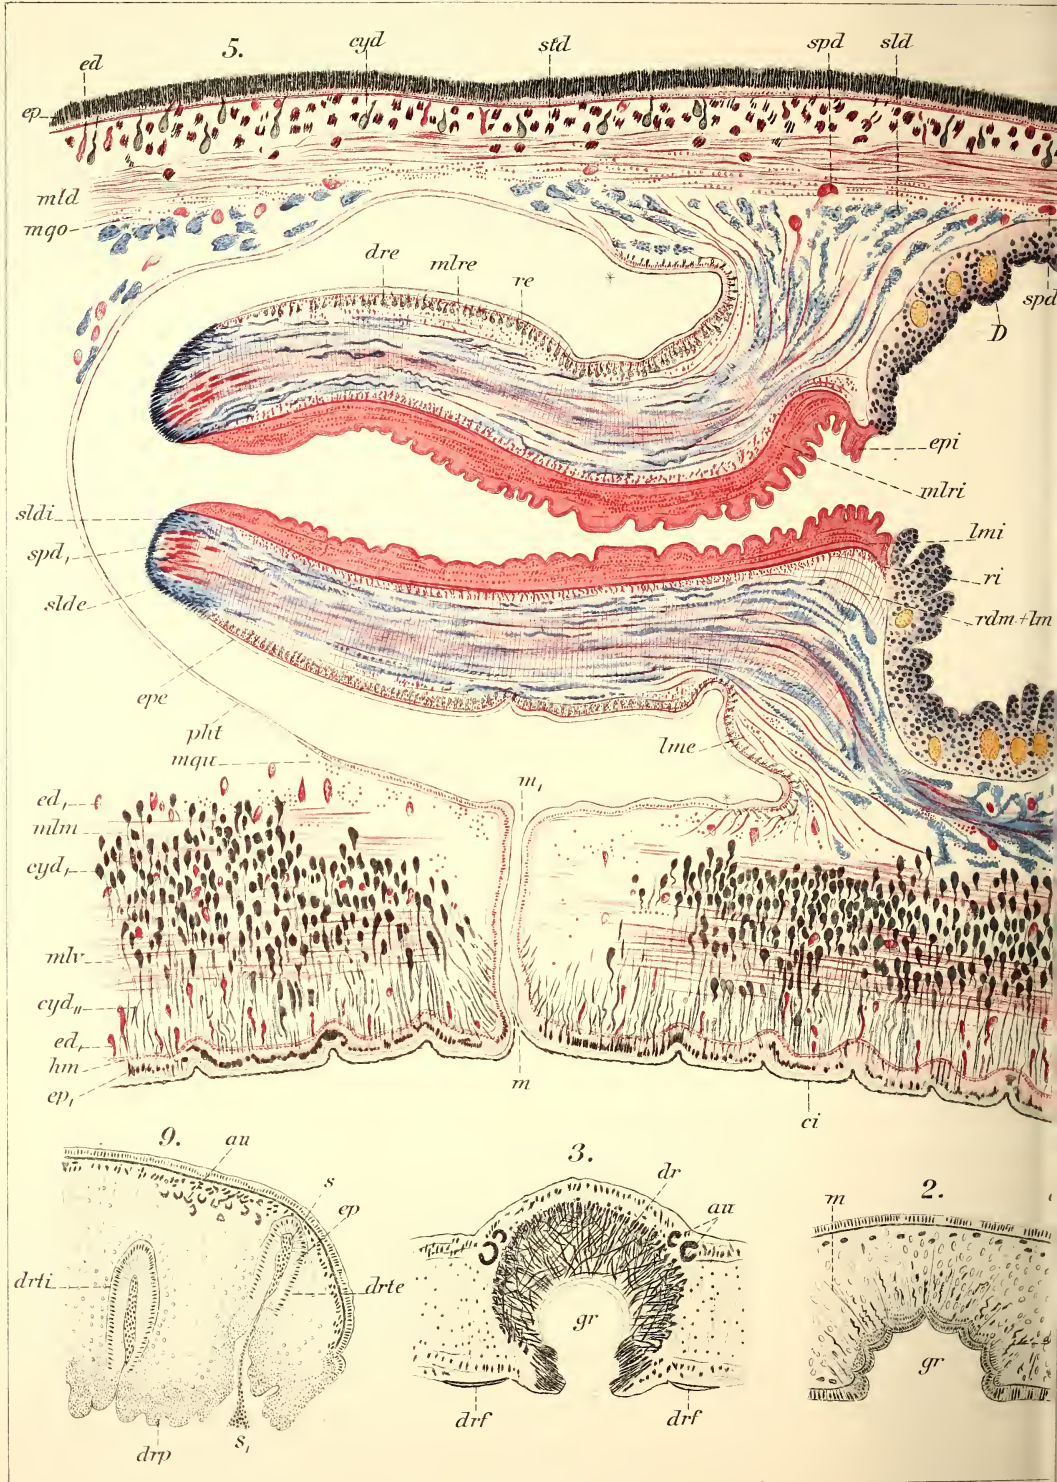 5.
ed
cyd
std
spd
sld
ep
mld
mqo
dre
mlre
re
spd
D
epi
mlri
sldi
spd₁
slde
lmi
ri
rdm+lm
epe
pht
mqu
lme
m₁
ed₁
mlm
cyd₁
mlv
cyd₁₁
ed₁
hm
ep₁
m
ci
9.
au
s
ep
drti
drte
drp
s₁
3.
dr
au
gr
drf
drf
2.
m
gr